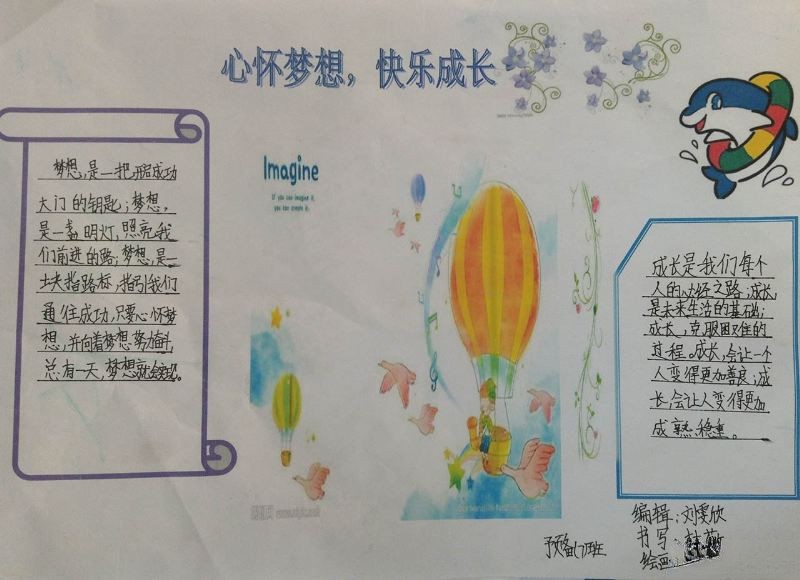 心怀梦想，快乐成长
梦想,是一把开启成功
大门的钥匙;梦想,
是一盏明灯,照亮我
们前进的路;梦想,是一
块指路标,指引我们
通往成功,只要心怀梦
想,并向着梦想努力奋斗,
总有一天,梦想就会实现。
Imagine
If you can imagine it,
you can create it.
成长是我们每个
人的必经之路;成长,
是未来生活的基础;
成长,克服困难的
过程。成长,会让一个
人变得更加善良;成
长,会让人变得更加
成熟、稳重。
预备(7)班
编辑:刘雯欣
书写:
绘画: